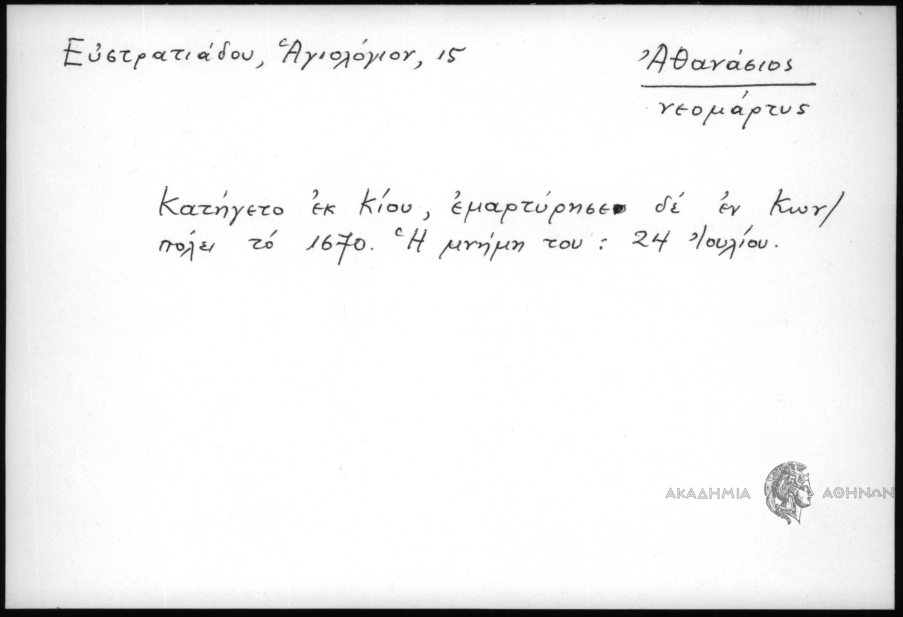 Εὐστρατιάδου, Ἁγιολόγιον, 15
Ἀθανάσιος
νεομάρτυς
Κατήγετο ἐκ Κίου, ἐμαρτύρησε δέ ἐν Κων/
πόλει τό 1670. Ἡ μνήμη του : 24 Ἰουλίου.
ΑΚΑΔΗΜΙΑ ΑΘΗΝΩΝ